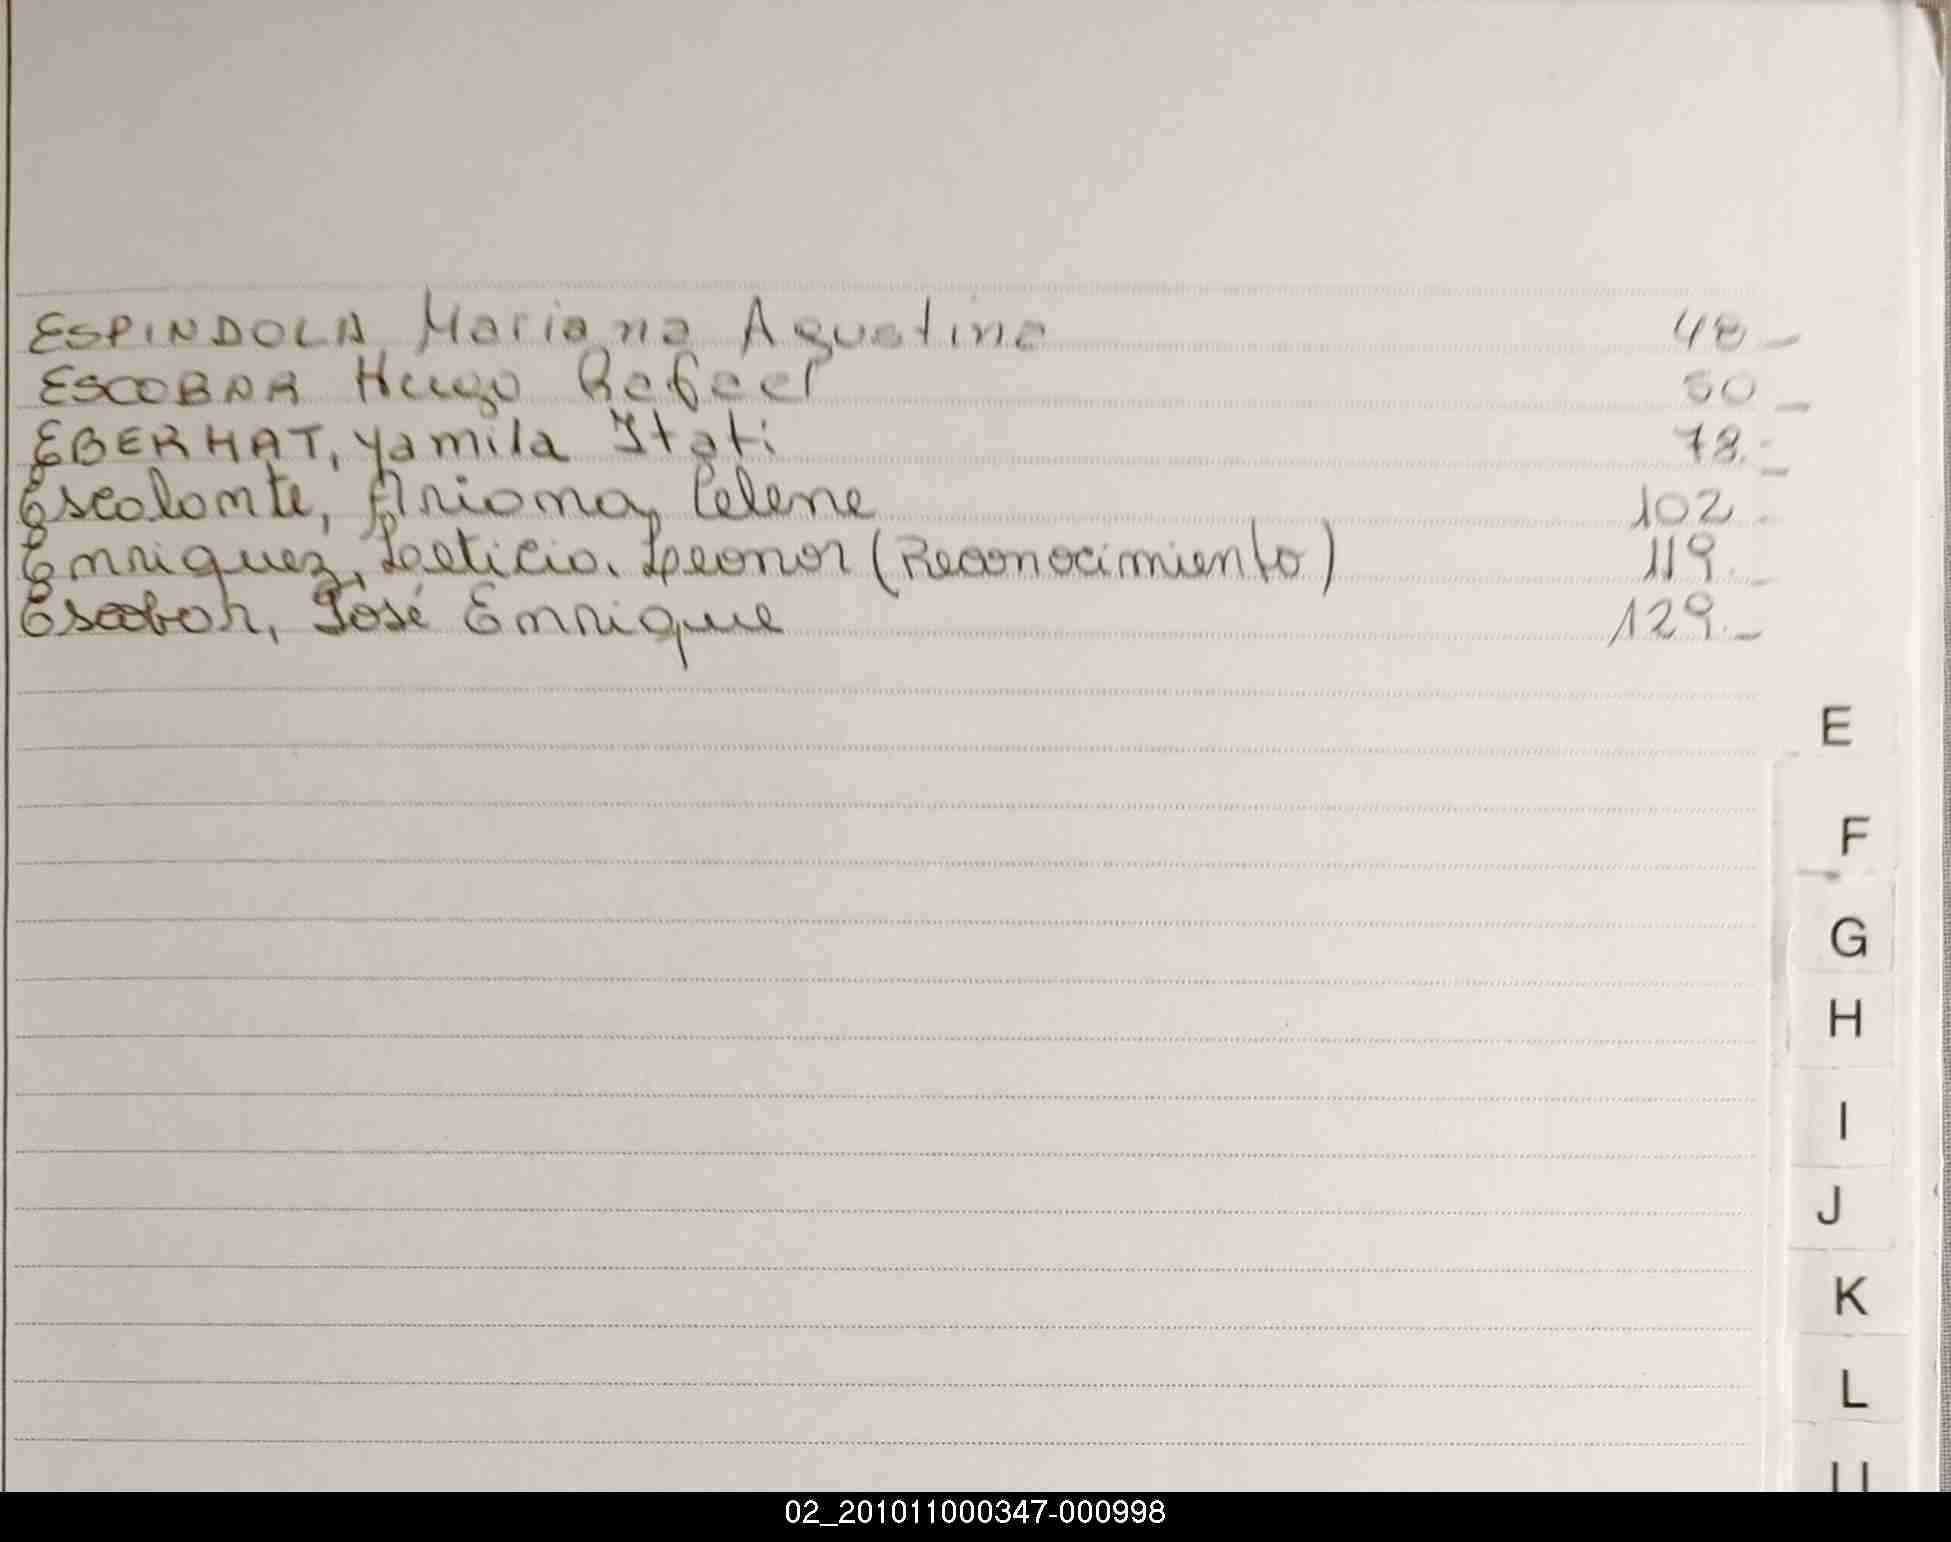 ESPINDOLA Mariana Agustina 48_
ESCOBAR Hugo Rafael 50_
EBERHAT, Yamila Itati 78._
Escalante, Ariana, Celene 102
Enriquez, Leticia. Leonor (Reconocimiento) 119._
Escobar, José Enrique 129._
E
F
G
H
I
J
K
L
02_201011000347-000998